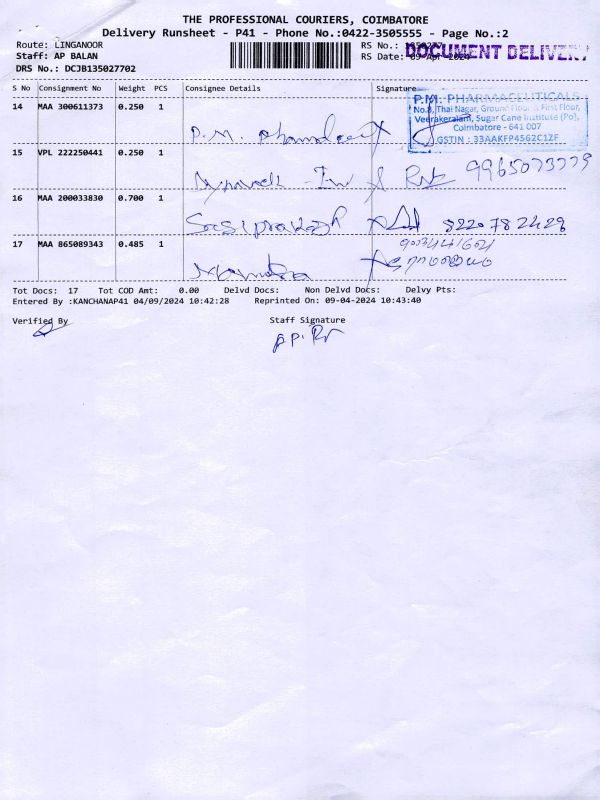 THE PROFESSIONAL COURIERS, COIMBATORE
Delivery Runsheet - P41 - Phone No.:0422-3505555 - Page No.:2
Route: LINGANOOR
RS No.:
Staff: AP BALAN
RS Date: 09-Apr-2024
DOCUMENT DELIVERY
DRS No.: DCJB135027702
S No Consignment No Weight PCS Consignee Details Signature
14 MAA 300611373 0.250 1
P.M.
P.M. PHARMACEUTICALS
No.8, Thai Nagar, Ground Floor & First Floor,
Veerakeralam, Sugar Cane Institute (Po),
Coimbatore - 641 007
GSTIN : 33AAKFP4562C1ZF
15 VPL 222250441 0.250 1
9965073779
16 MAA 200033830 0.700 1
Sasiprakash 8220782428
17 MAA 865089343 0.485 1
Tot Docs: 17 Tot COD Amt: 0.00 Delvd Docs: Non Delvd Docs: Delvy Pts:
Entered By :KANCHANAP41 04/09/2024 10:42:28 Reprinted On: 09-04-2024 10:43:40
Verified By Staff Signature